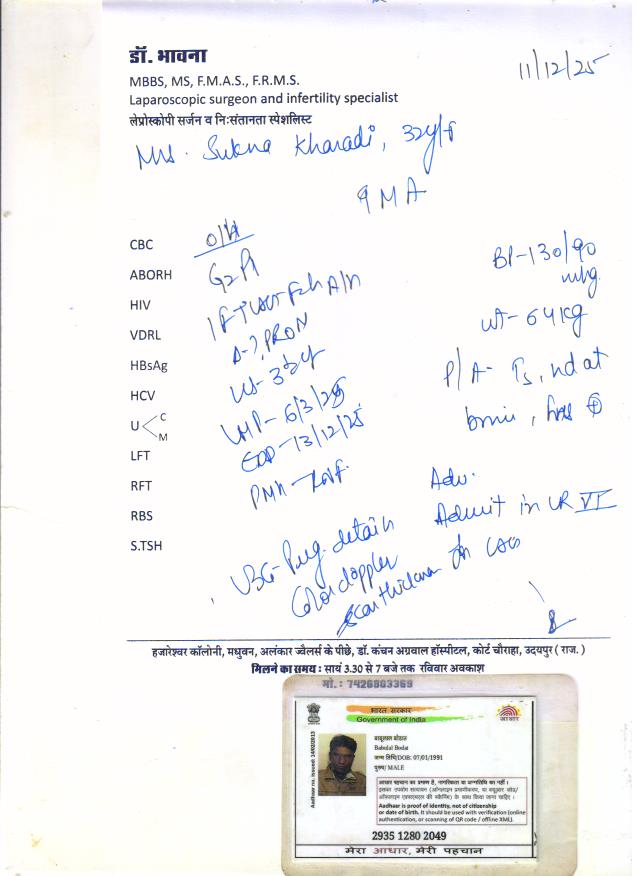 डॉ. भावना
MBBS, MS, F.M.A.S., F.R.M.S.
Laparoscopic surgeon and infertility specialist
लेप्रोस्कोपी सर्जन व नि:संतानता स्पेशलिस्ट
11/12/25
Mrs. Sukna Kharadi, 32y/f
9 MA
CBC
O/H
ABORH
G2P1
BP-130/90
HIV
mmHg
VDRL
wt- 64kg
HBsAg
HCV
P/A-
U
C
M
LMP- 6/3/25
EDD-13/12/25
LFT
RFT
Adv.
RBS
Admit in LR VI
S.TSH
USG-Preg. detain
Color doppler
हजारेश्वर कॉलोनी, मधुवन, अलंकार ज्वैलर्स के पीछे, डॉ. कंचन अग्रवाल हॉस्पीटल, कोर्ट चौराहा, उदयपुर ( राज. )
मिलने का समय : सायं 3.30 से 7 बजे तक रविवार अवकाश
मो. : 7426803369
भारत सरकार
Government of India
आधार
Aadhaar no. issued: 14/02/2013
बाबुलाल बोडात
Babulal Bodat
जन्म तिथि/DOB: 07/01/1991
पुरुष/ MALE
आधार पहचान का प्रमाण है, नागरिकता या जन्मतिथि का नहीं ।
इसका उपयोग सत्यापन (ऑनलाइन प्रमाणीकरण, या क्यूआर कोड/
ऑफलाइन एक्सएमएल की स्कैनिंग) के साथ किया जाना चाहिए ।
Aadhaar is proof of identity, not of citizenship
or date of birth. It should be used with verification (online
authentication, or scanning of QR code / offline XML).
2935 1280 2049
मेरा आधार, मेरी पहचान